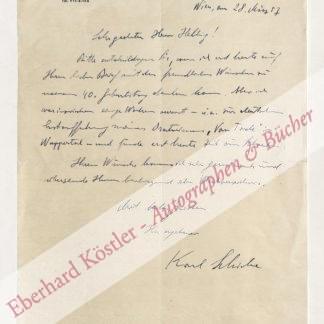 Wien, am 28. März 57
Sehr geehrter Herr Helbig!
Bitte entschuldigen Sie, wenn ich erst heute auf
Ihren lieben Brief mit den freundlichen Wünschen zu
meinem 40. Geburtstag danken kann. Aber ich
war inzwischen einige Wochen verreist - u.a. zur deutschen
Erstaufführung meines Oratoriums "Vom Tode"
Wuppertal - und finde erst heute
Ihrem Wunsche komme ich sehr gerne nach und
übersende Ihnen
Mit
Ihr ergebener
Karl Schiske
Eberhard Köstler - Autographen & Bücher